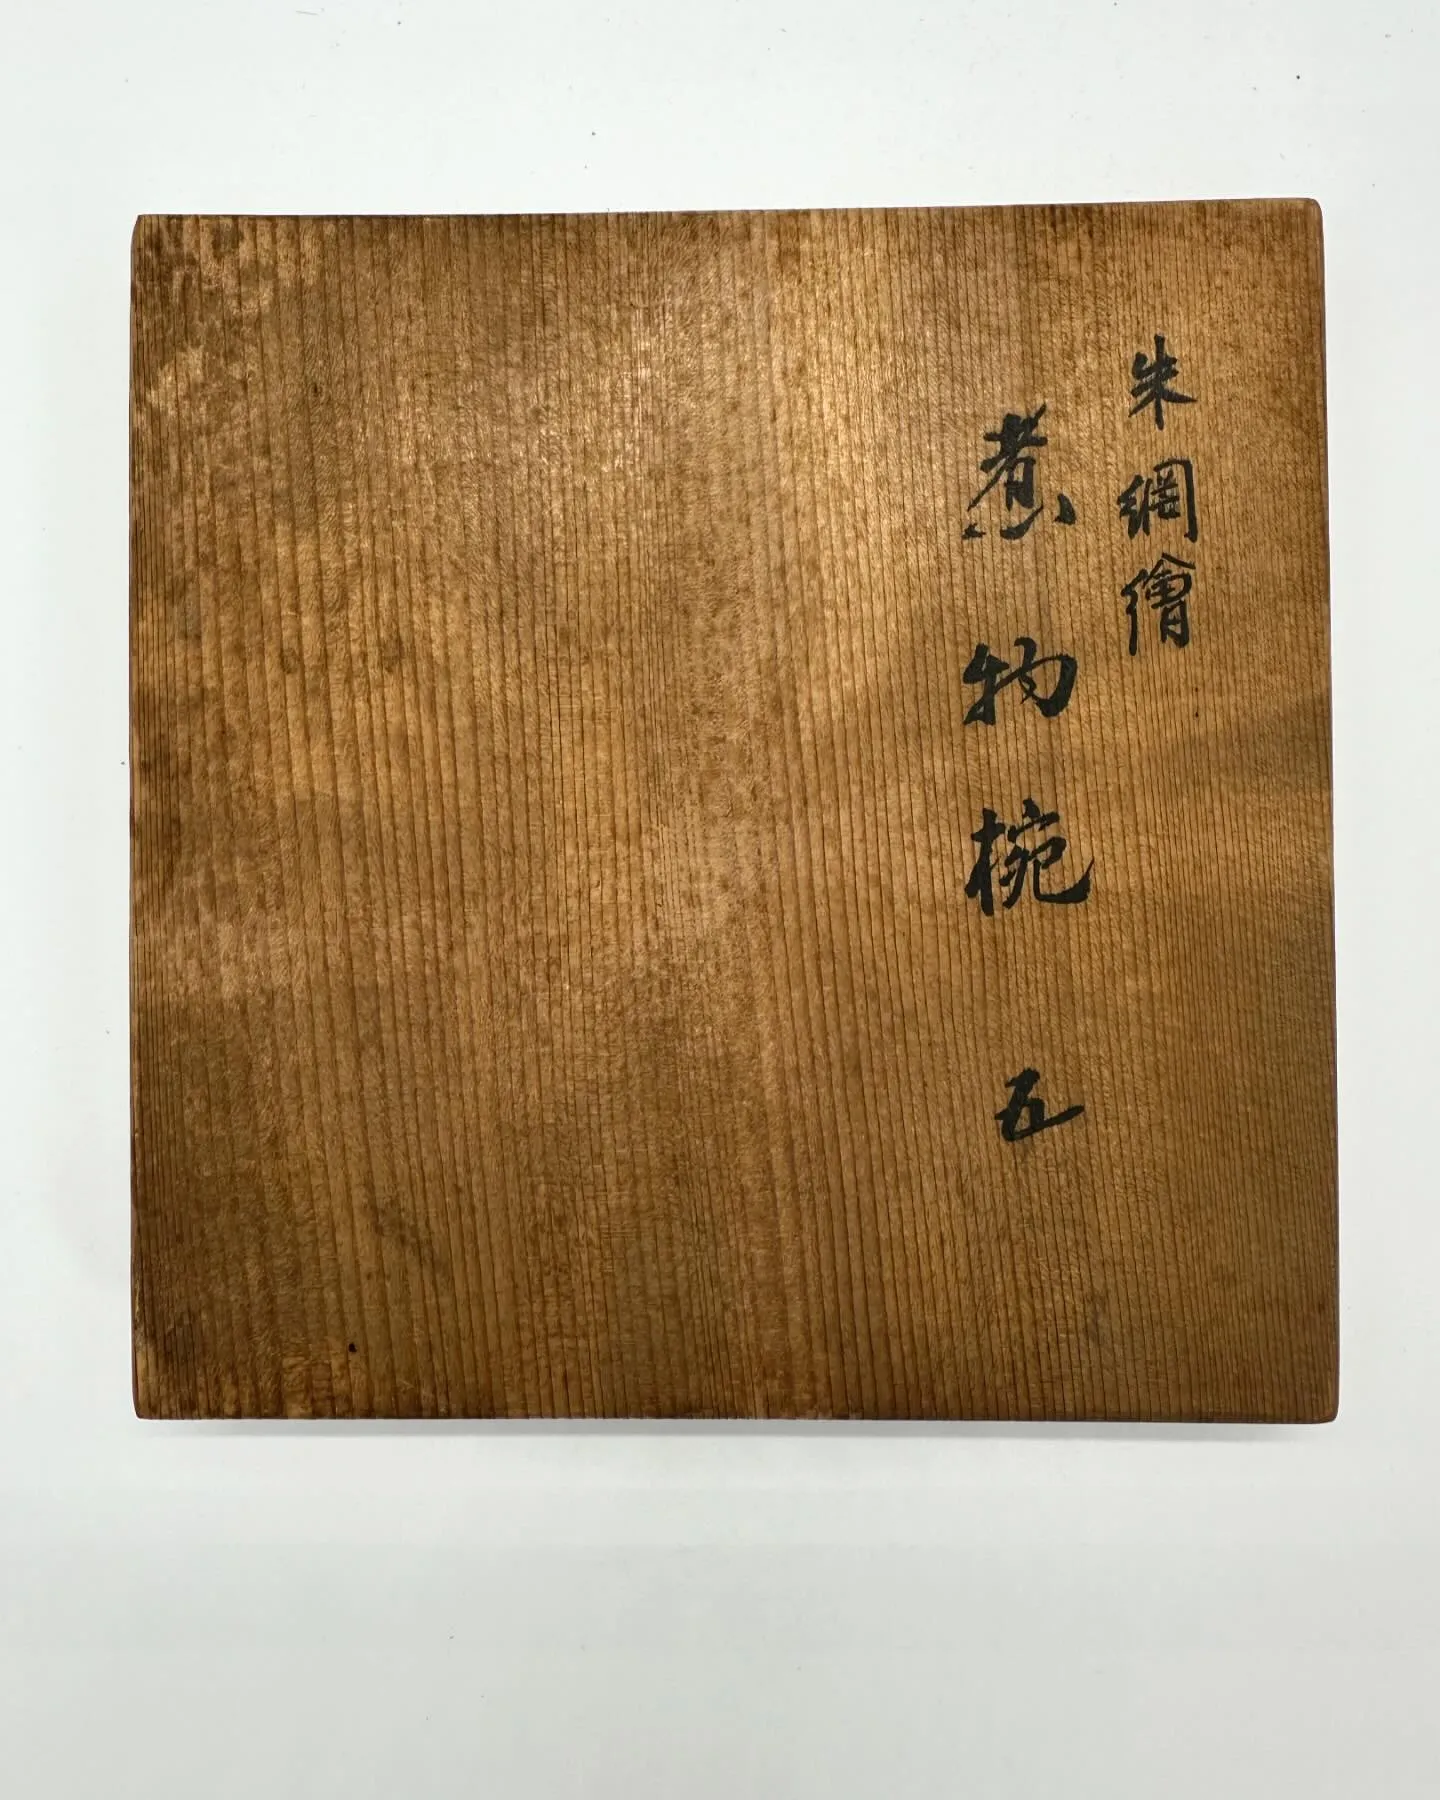 朱網繪
煮物椀 五